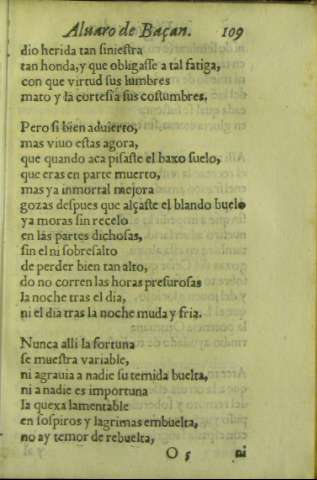 Aluaro de Baçan. 109
dio herida tan siniestra
tan honda, y que obligasse a tal fatiga,
con que virtud sus lumbres
mato y la cortesia sus costumbres.
Pero si bien aduierto,
mas viuo estas agora,
que quando aca pisaste el baxo suelo,
que eras en parte muerto,
mas ya inmortal mejora
gozas despues que alçaste el blando buelo
ya moras sin recelo
en las partes dichosas,
sin el ni sobresalto
de perder bien tan alto,
do no corren las horas presurosas
la noche tras el dia,
ni el dia tras la noche muda y fria.
Nunca alli la fortuna
se muestra variable,
ni agrauia a nadie su temida buelta,
ni a nadie es importuna
la quexa lamentable
en sospiros y lagrimas embuelta,
no ay temor de rebuelta,
O 5 ni